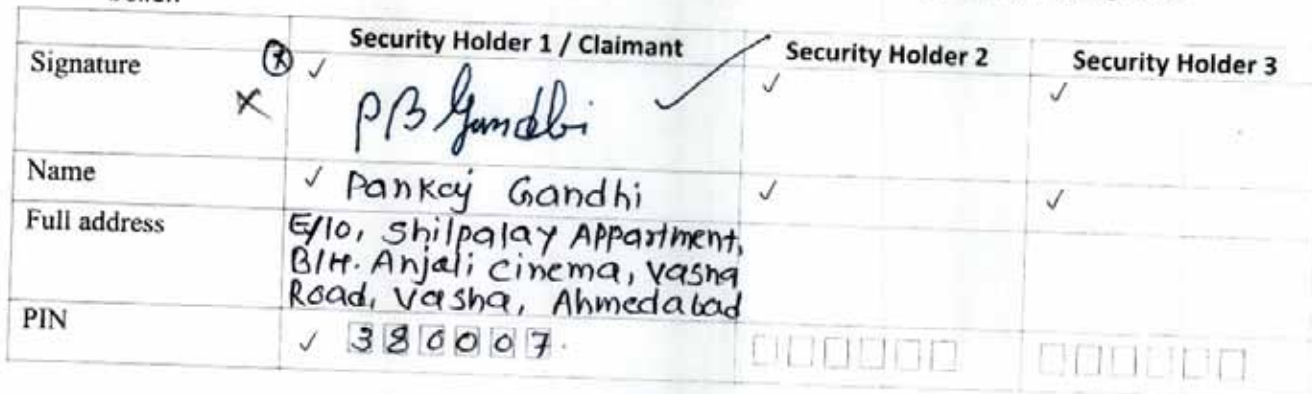 Security Holder 1 / Claimant Security Holder 2 Security Holder 3
Signature ✓ ✓ ✓
PB Gandhi ✓
Name ✓ Pankaj Gandhi ✓ ✓
Full address E/10, Shilpalay Appartment,
B/H. Anjali cinema, vasna
Road, Vasna, Ahmedabad
PIN ✓ 380007.